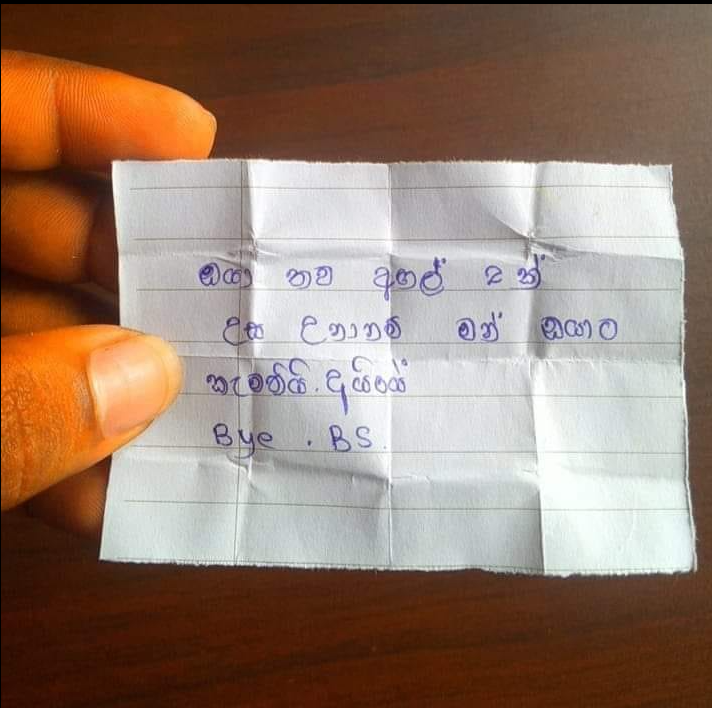 ඔයා තව අඟල් 2 ක්
උස උනානම් මන් ඔයාට
කැමතියි. දුයියෝ
Bye . BS.